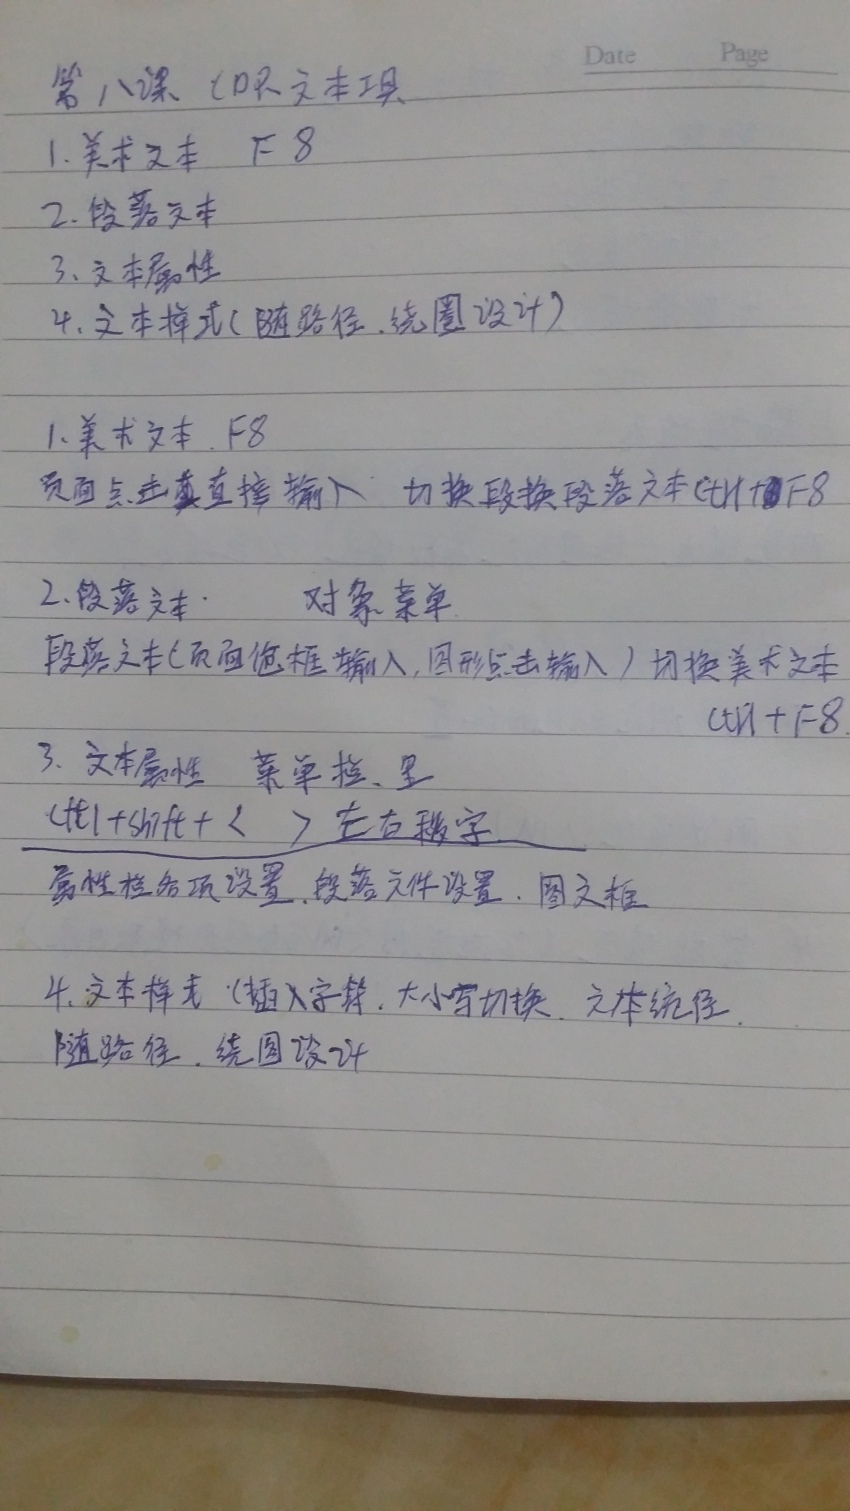 Date Page
第八课 CDR文本工具
1.美术文本 F8
2.段落文本
3.文本属性
4.文本样式(随路径.绕图设计)
1.美术文本.F8
页面点击直接输入 切换段换段落文本Ctrl+F8
2.段落文本. 对象菜单
段落文本(页面 框输入,图形点击输入)切换美术文本
Ctrl+F8.
3.文本属性 菜单栏.里
Ctrl+shift+< >左右移字
属性栏各项设置.段落文件设置.图文框
4.文本样式(插入字符.大小写切换.文本统 .
随路径.绕图设计